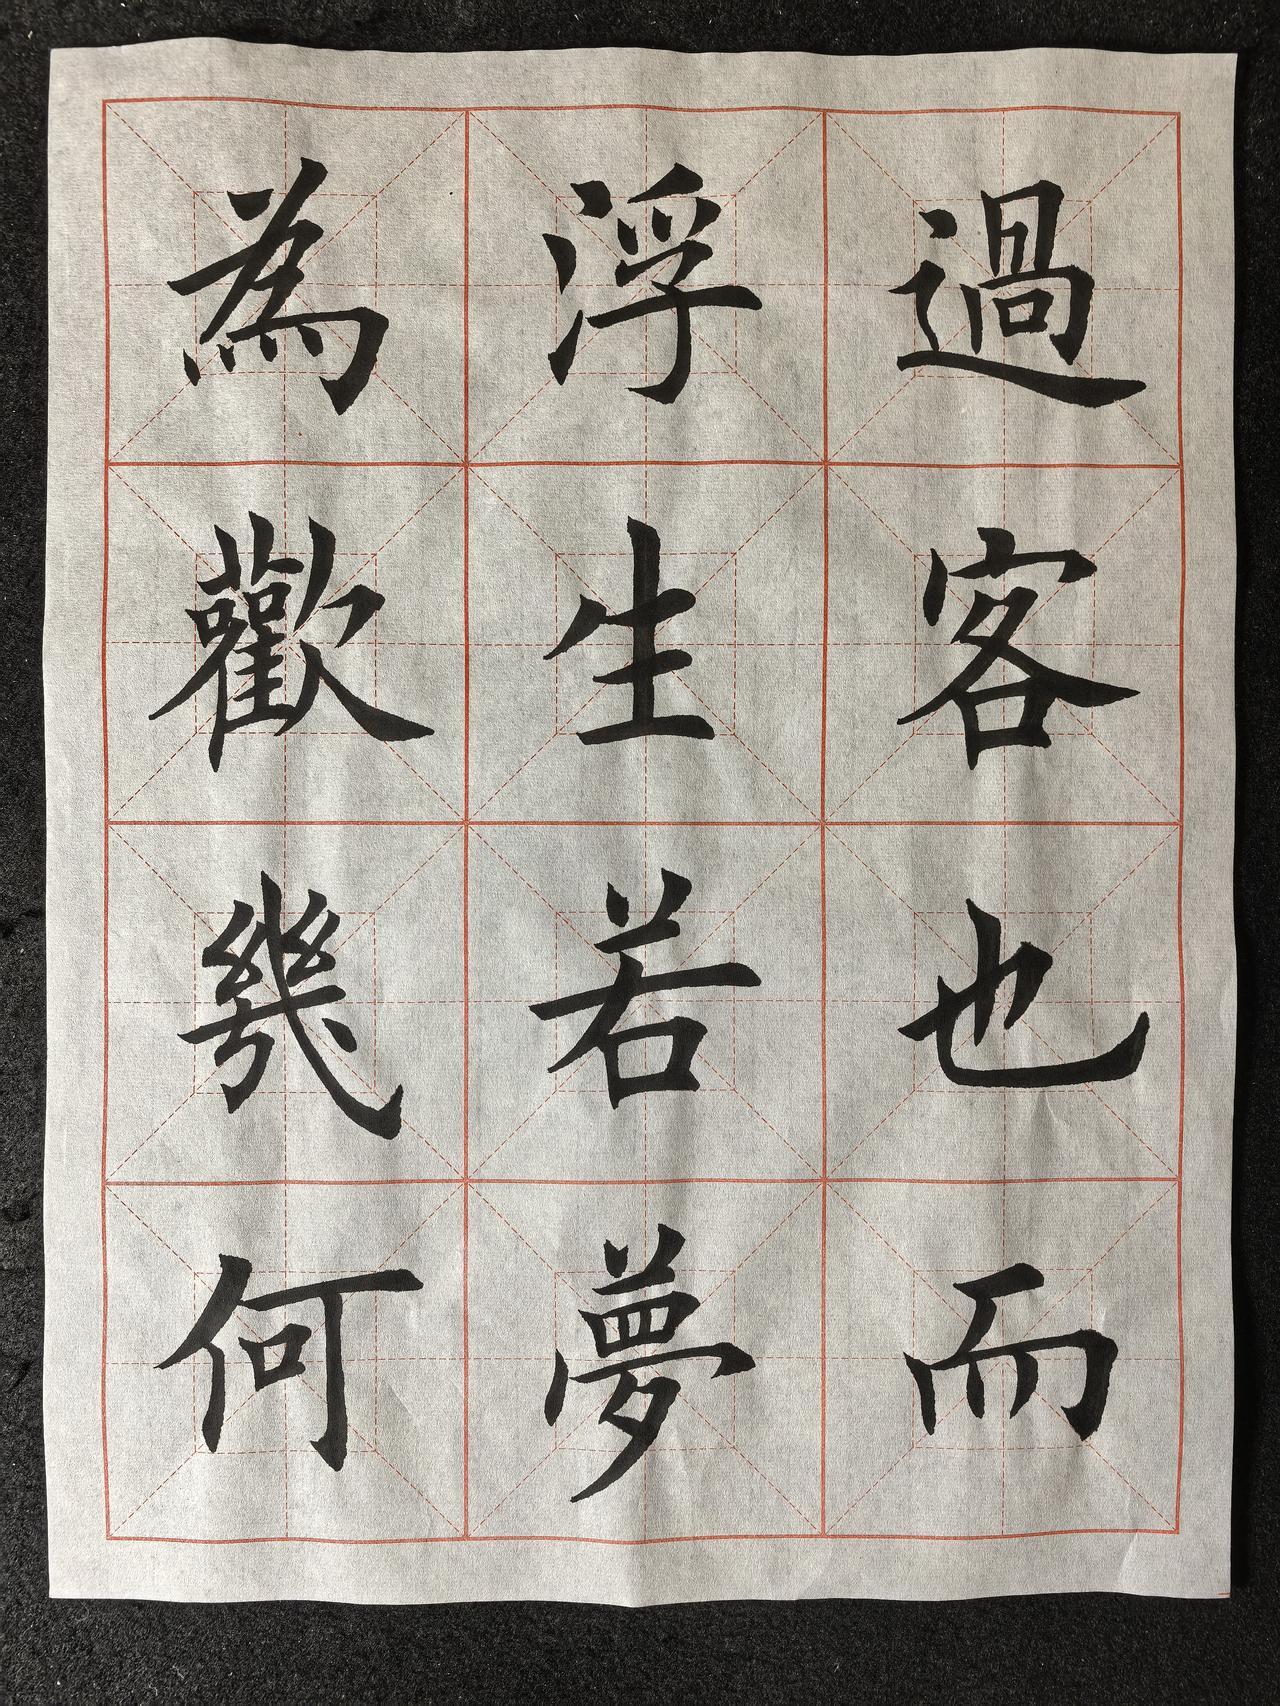 過客也而
浮生若夢
為歡幾何